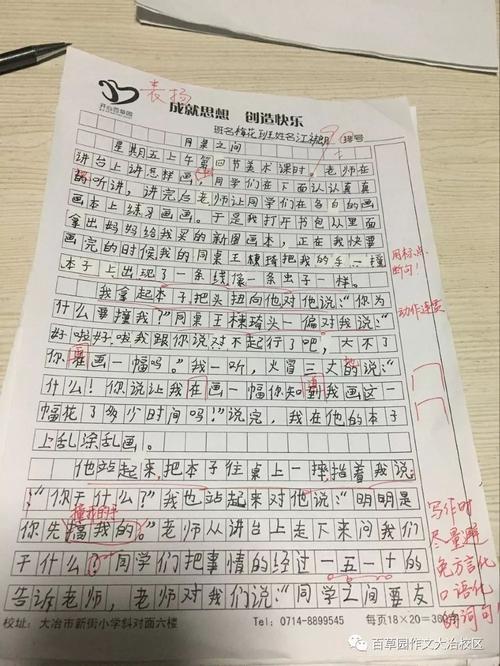 开心百草园
表扬
成就思想 创造快乐
班名梅花班姓名江 排号
同桌之间
星期五上午第四节美术课时,老师在
讲台上讲怎样画,同学们在下面认认真真
的听讲,讲完后老师让同学们在各自的画
画本上练习画画。于是我打开书包从里面
拿出妈妈给我买的新图画本,正在我快要
画完的时候我的同桌王 琦把我的手一撞
本子上出现了一条线像一条虫子一样。
用标点
断句!
我拿起本子把头扭向他对他说:“你为
动作连贯
什么要撞我?”同桌王 琦头一偏对我说:“
好啦好啦我跟你说对不起行了吧,大不了
你再画一幅吗。”我一听,火冒三丈的说:“
什么!你说让我在画一幅你知到我画这一
幅花了多少时间吗!”说完,我在他的本子
上乱涂乱画。
他站起来,把本子往桌上一摔指着我说
:“你干什么?”我也站起来对他说:“明明是
撞我的手
你先搞我的。”老师从讲台上走下来问我们
干什么?同学们把事情的经过一五一十的
告诉老师,老师对我们说:“同学之间要友
写作时
尽量避
免方言化
口语化
的词句!
校址:大冶市新街小学斜对面六楼 Tel:0714-8899545 每页18×20=360字
百草园作文大冶校区